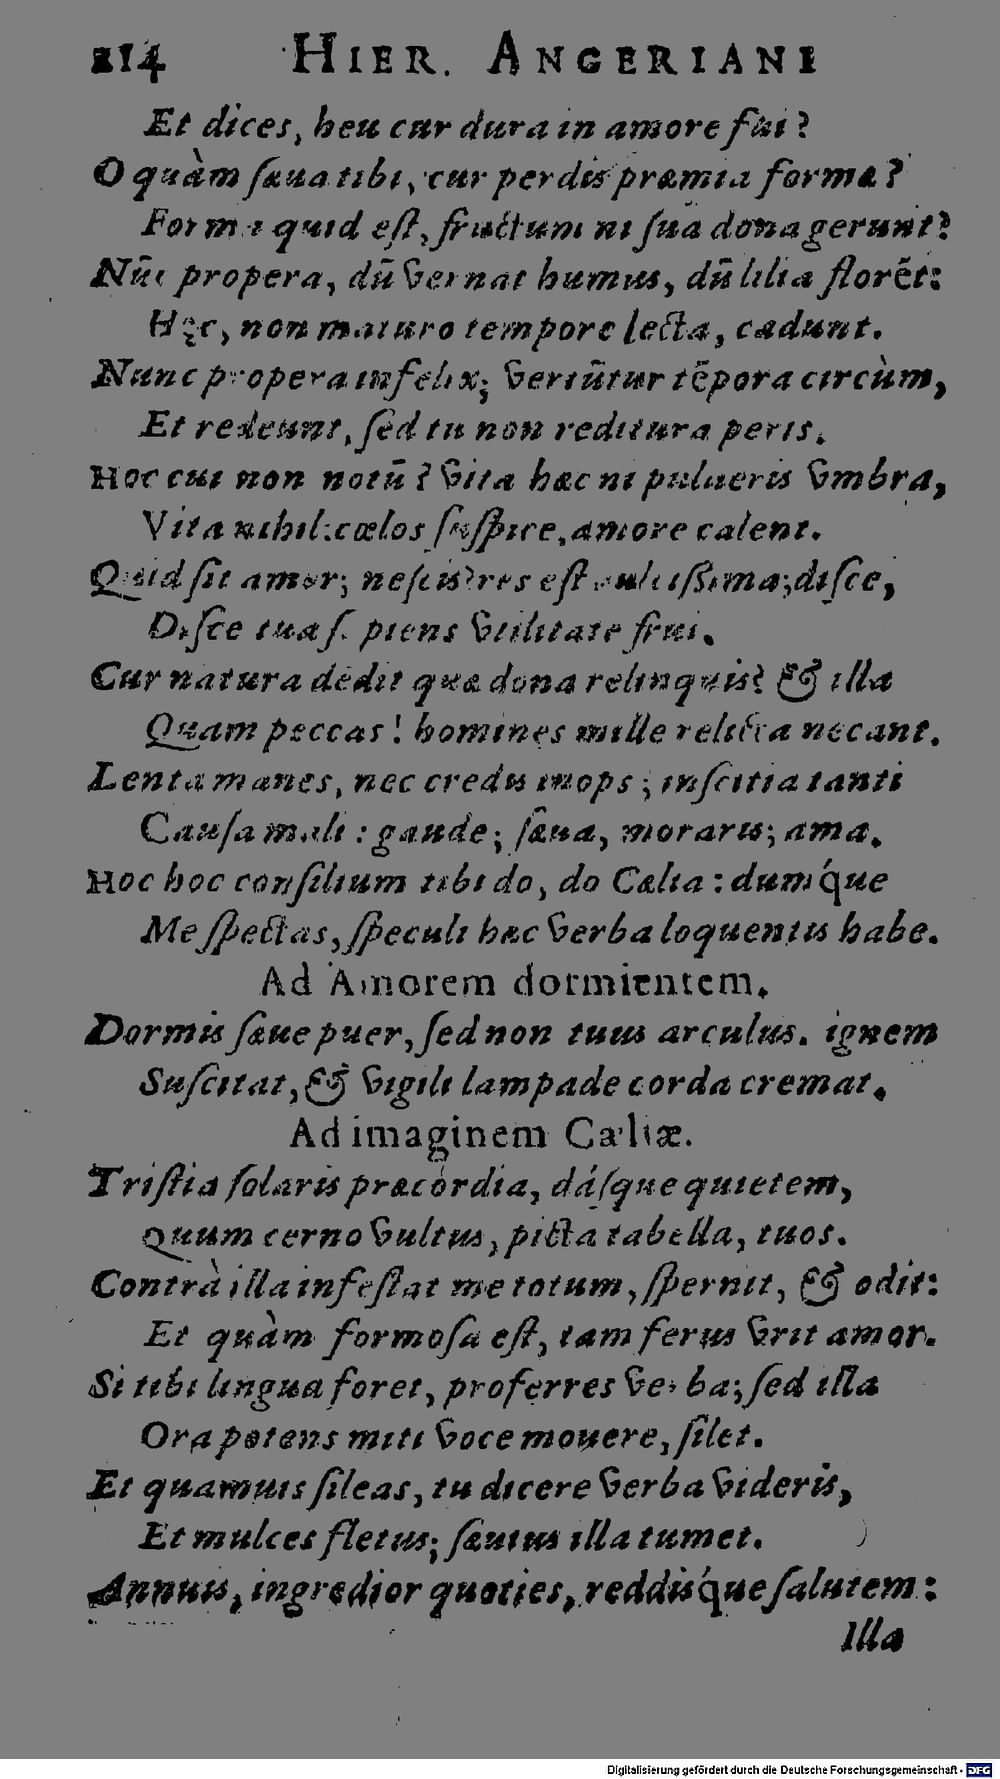 214 HIER. ANGERIANI
Et dices, heu cur dura in amore fui?
O quàm sæua tibi, cur perdis præmia formæ?
Forma quid est, fructum ni sua dona gerunt?
Nūc propera, dū vernat humus, dū lilia florēt:
Hęc, non maturo tempore lecta, cadunt.
Nunc propera infelix; vertūtur tēpora circùm,
Et redeunt, sed tu non reditura peris.
Hoc cui non notū? vita hæc ni pulueris vmbra,
Vita nihil: cœlos suspice, amore calent.
Quid sit amor; nescis? res est issima; disce,
Disce tua sapiens vtilitate frui.
Cur natura dedit quæ dona relinquis? & illa
Quam peccas! homines mille relicta necant.
Lenta manes, nec credis inops; inscitia tanti
Causa mali: gaude; sæua, moraris; ama.
Hoc hoc consilium tibi do, do Cælia: dumq́ue
Me spectas, speculi hæc verba loquentis habe.
Ad Amorem dormientem.
Dormis sæue puer, sed non tuus arculus. ignem
Suscitat, & vigili lampade corda cremat.
Ad imaginem Cæliæ.
Tristia solaris præcordia, dásque quietem,
Quum cerno vultus, picta tabella, tuos.
Contrà illa infestat me totum, spernit, & odit:
Et quàm formosa est, tam ferus vrit amor.
Si tibi lingua foret, proferres verba; sed illa
Ora potens miti voce mouere, silet.
Et quamuis sileas, tu dicere verba videris,
Et mulces fletus; sæuius illa tumet.
Annuis, ingredior quoties, reddisq́ue salutem:
Illa
Digitalisierung gefördert durch die Deutsche Forschungsgemeinschaft - DFG